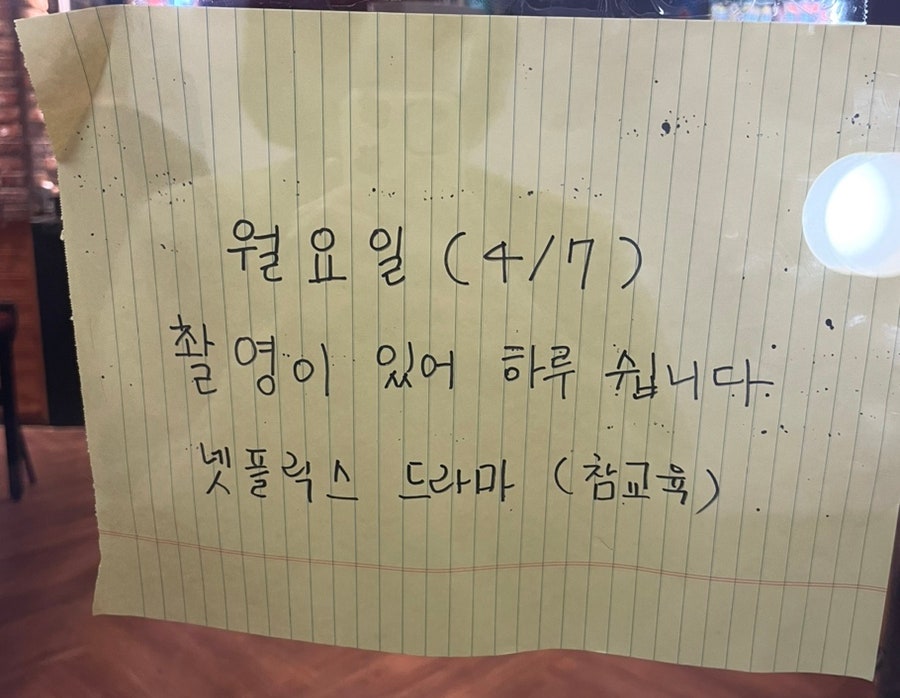 월요일 (4/7)
촬영이 있어 하루 쉽니다.
넷플릭스 드라마 (참교육)